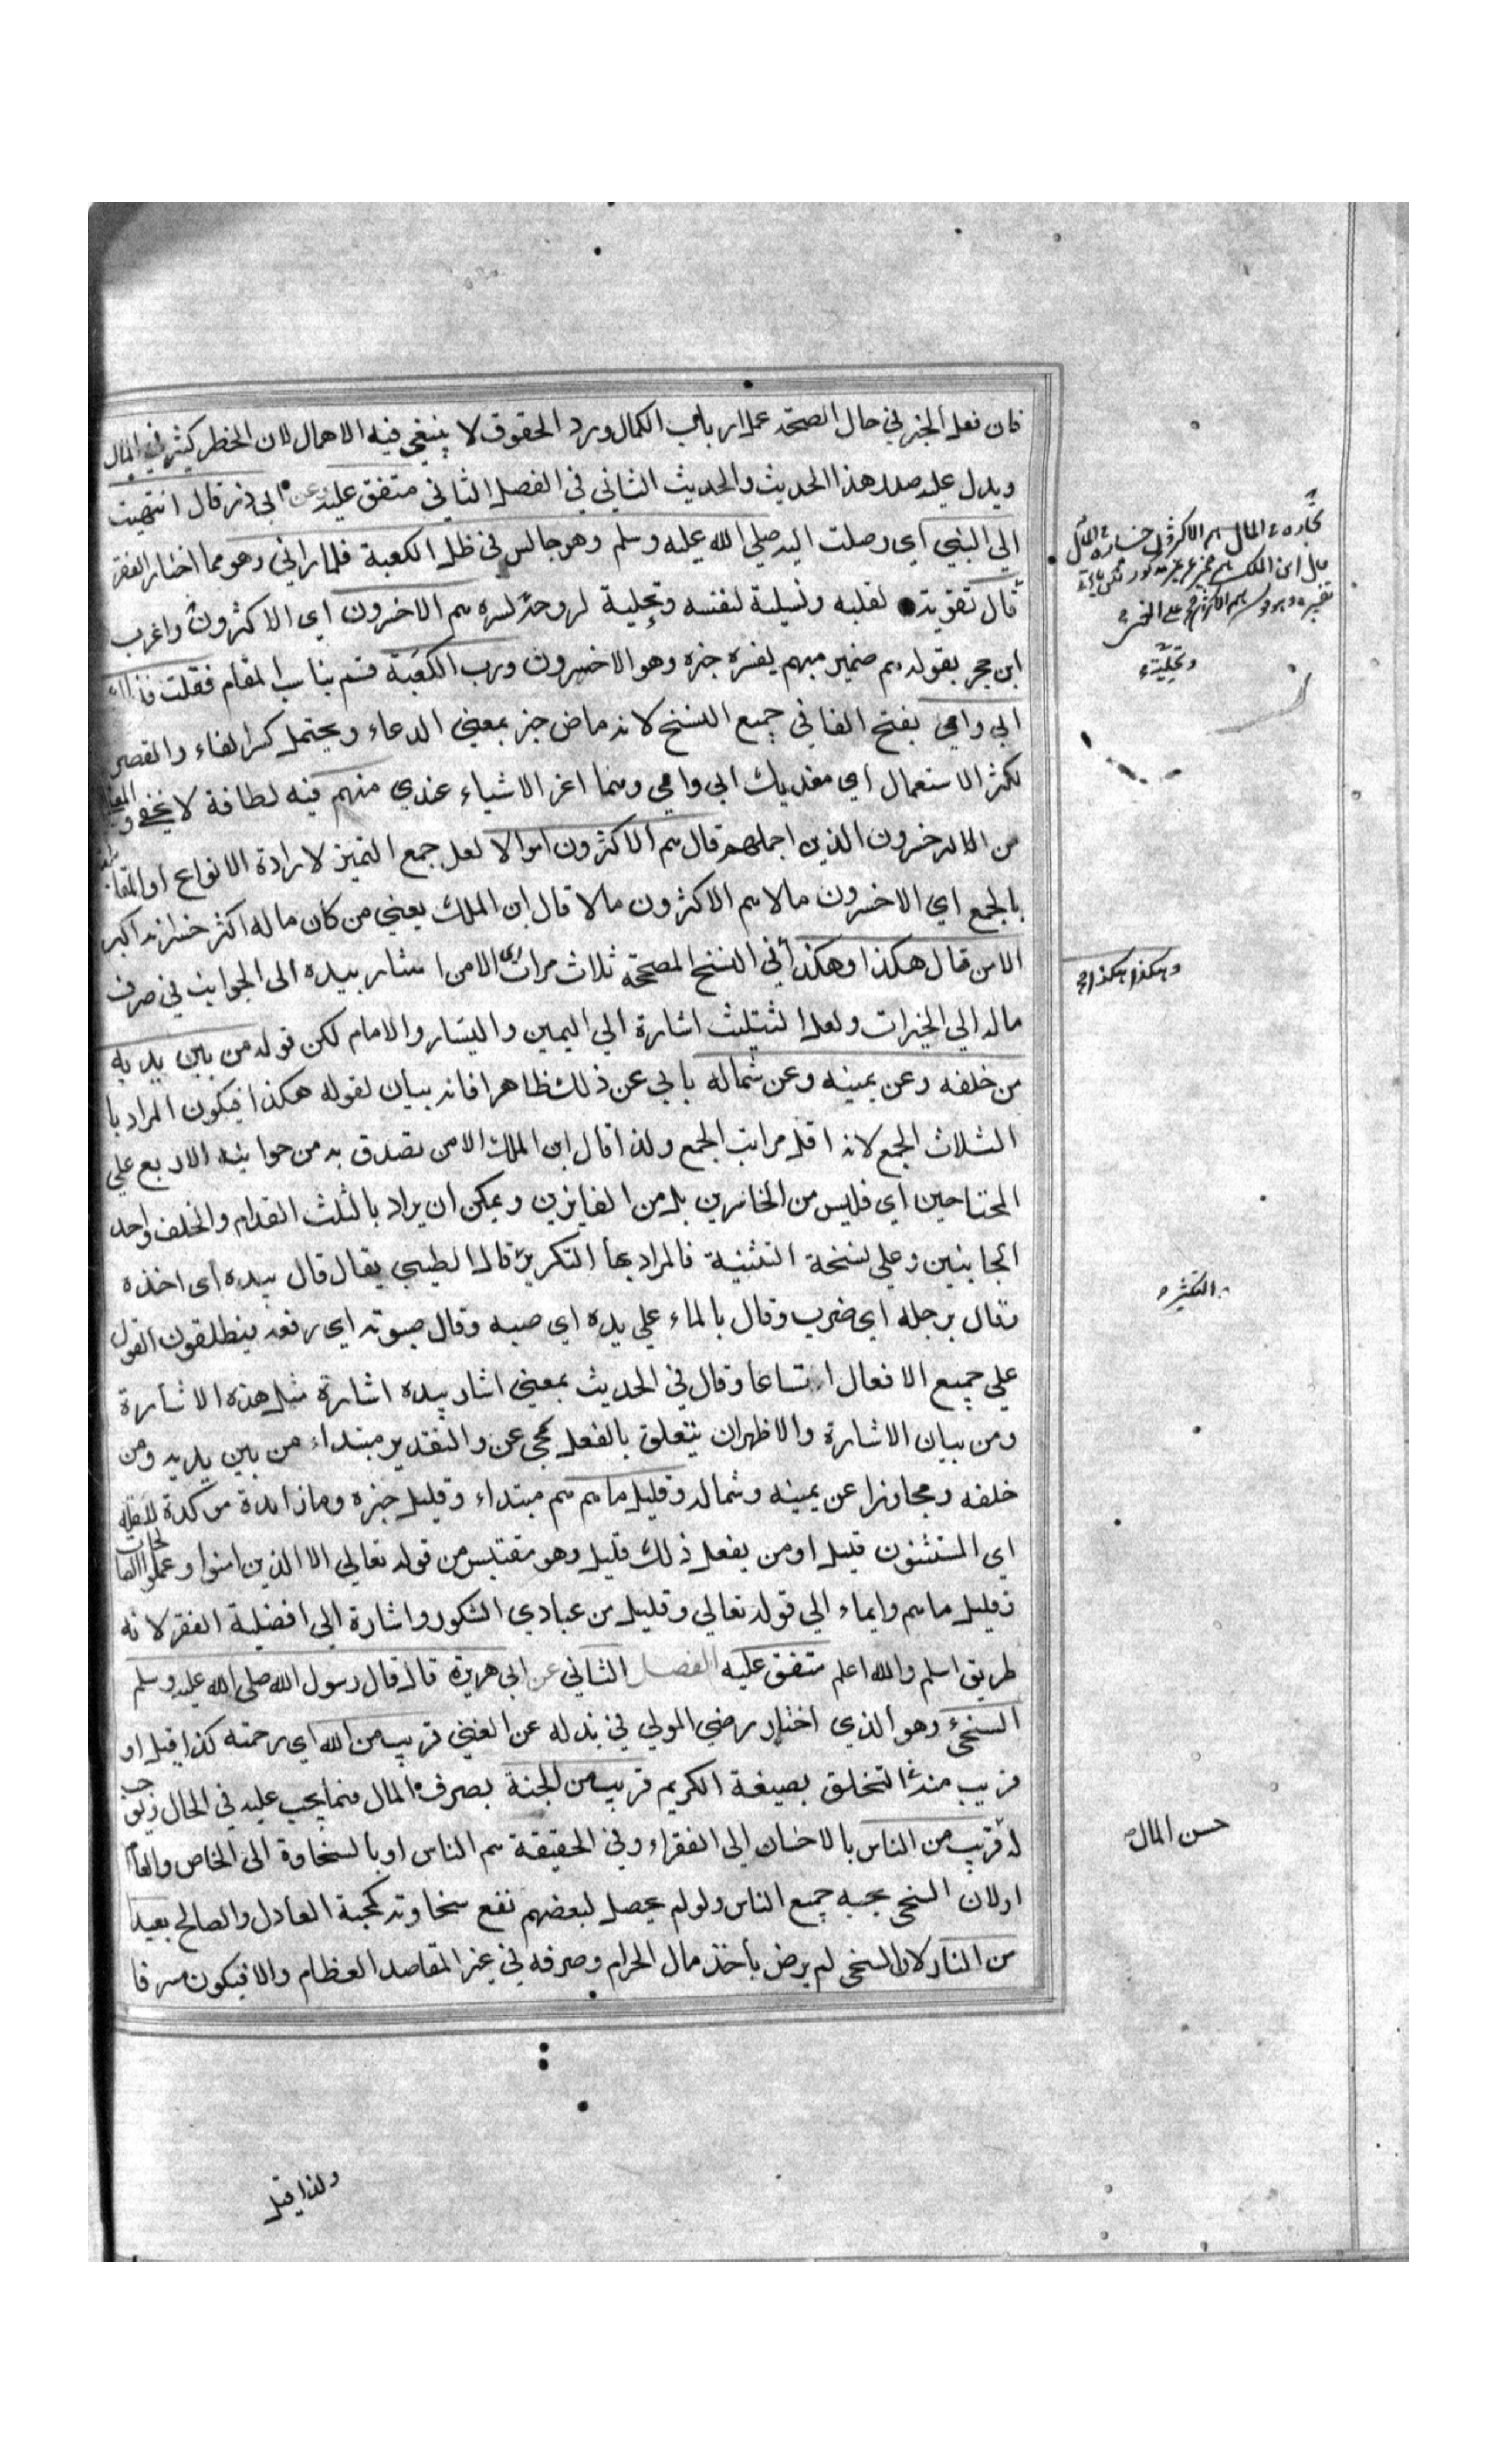 فان فعل الخير في حال الصحة عمل ارباب الكمال ورد الحقوق لا ينبغي فيه الاهمال لان الخطر كثير في المال
ويدل عليه صدر هذا الحديث والحديث الثاني في الفصل الثاني متفق عليه وعن ابي ذر قال انتهيت
الي النبي اي وصلت اليه صلي الله عليه وسلم وهو جالس في ظل الكعبة فلما راني وهو مما اختار الفقر
قال تقوية لقلبه وتسلية لنفسه وتجلية لروحه لسره هم الاخسرون اي الاكثرون واغرب
ابن حجر بقوله هم ضمير مبهم يفسره خبره وهو الاخسرون ورب الكعبة قسم يناسب المقام فقلت فداك
ابي وامي بفتح الفا في جميع النسخ لانه ماض خبر بمعني الدعاء ويحتمل كسر الفاء والقصر
لكثرة الاستعمال اي مفديك ابي وامي وهما اعز الاشياء عندي منهم فيه لطافة لا يخفي
من الاخسرون الذين اجملتهم قال هم الاكثرون اموالا لعل جمع التميز لارادة الانواع او
بالجمع اي الاخسرون مالا هم الاكثرون مالا قال ابن الملك يعني من كان ماله اكثر خسرانه اكبر
الا من قال هكذا وهكذا في النسخ المصححة ثلاث مرات اي الا من اشار بيده الي الجوانب في صرف
ماله الي الخيرات ولعل التثليث اشارة الي اليمين واليسار والامام لكن قوله من بين يديه
من خلفه وعن يمينه وعن شماله يابي عن ذلك ظاهرا فانه بيان لقوله هكذا فيكون المراد با
الثلاث الجمع لانه اقل مراتب الجمع ولذا قال ابن الملك الا من تصدق به من جوانبه الاربع علي
المحتاجين اي فليس من الخاسرين بل من الفايزين ويمكن ان يراد بالثلث القدام والخلف واحد
الجانبين وعلي نسخة التثنية فالمراد بها التكرير قال الطيبي يقال قال بيده اي اخذه
وقال برجله اي ضرب وقال بالماء علي يده اي صبه وقال بصوته اي رفعه فيطلقون القول
علي جميع الافعال اتساعا وقال في الحديث بمعني اشار بيده اشارة مثل هذه الاشارة
ومن بيان الاشارة والاظهر ان يتعلق بالفعل كمجي عن والتقدير مبتداء من بين يديه ومن
خلفه ومجاوزا عن يمينه وشماله وقليل ما هم هم مبتداء وقليل خبره وما زائدة موكدة للقلة
اي المستثنون قليل او من يفعل ذلك قليل وهو مقتبس من قوله تعالي الا الذين امنوا وعملوا الصالحات
وقليل ما هم وايماء الي قوله تعالي وقليل من عبادي الشكور واشارة الي افضلية الفقر لانه
طريق اسلم والله اعلم متفق عليه الفصل الثاني عن ابي هريرة قال قال رسول الله صلي الله عليه وسلم
السخي وهو الذي اختار رضي المولي في بذله عن الغني قريب من الله اي رحمته كذا قيل او
قريب منه التخلق بصيغة الكريم قريب من الجنة بصرف المال فيما يجب عليه في الحال
له قريب من الناس بالاحسان الي الفقراء وفي الحقيقة هم الناس او بالسخاوة الي الخاص والعام
او لان السخي يحبه جميع الناس ولو لم يحصل لبعضهم نفع سخاوته كمحبة العادل والصالح بعيد
من النار لان السخي لم يرض باخذ مال الحرام وصرفه في غير المقاصد العظام والا فيكون مسرفا
ولذا قيل
وتجليته
وهكذا هكذا
التكثير
حسن المال